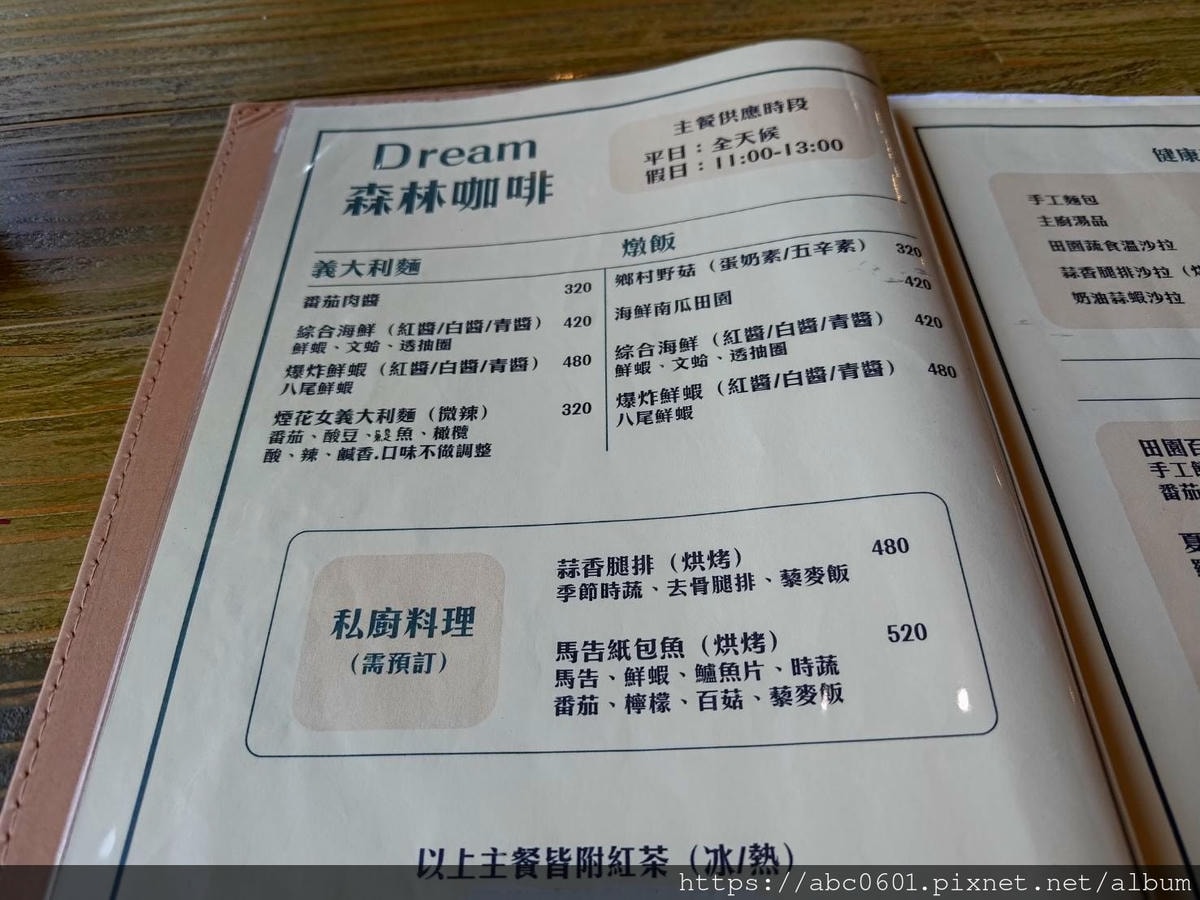 Dream
森林咖啡
主餐供應時段
平日：全天候
假日：11:00-13:00
義大利麵
番茄肉醬 320
綜合海鮮（紅醬/白醬/青醬） 420
鮮蝦、文蛤、透抽圈
爆炸鮮蝦（紅醬/白醬/青醬） 480
八尾鮮蝦
煙花女義大利麵（微辣） 320
番茄、酸豆、鯷魚、橄欖
酸、辣、鹹香.口味不做調整
燉飯
鄉村野菇（蛋奶素/五辛素） 320
海鮮南瓜田園 420
綜合海鮮（紅醬/白醬/青醬） 420
鮮蝦、文蛤、透抽圈
爆炸鮮蝦（紅醬/白醬/青醬） 480
八尾鮮蝦
私廚料理
（需預訂）
蒜香腿排（烘烤） 480
季節時蔬、去骨腿排、藜麥飯
馬告紙包魚（烘烤） 520
馬告、鮮蝦、鱸魚片、時蔬
番茄、檸檬、百菇、藜麥飯
以上主餐皆附紅茶（冰/熱）
健康
手工麵包
主廚湯品
田園蔬食溫沙拉
蒜香腿排沙拉（
奶油蒜蝦沙拉
田園百
手工
番茄
夏
https://abc0601.pixnet.net/album